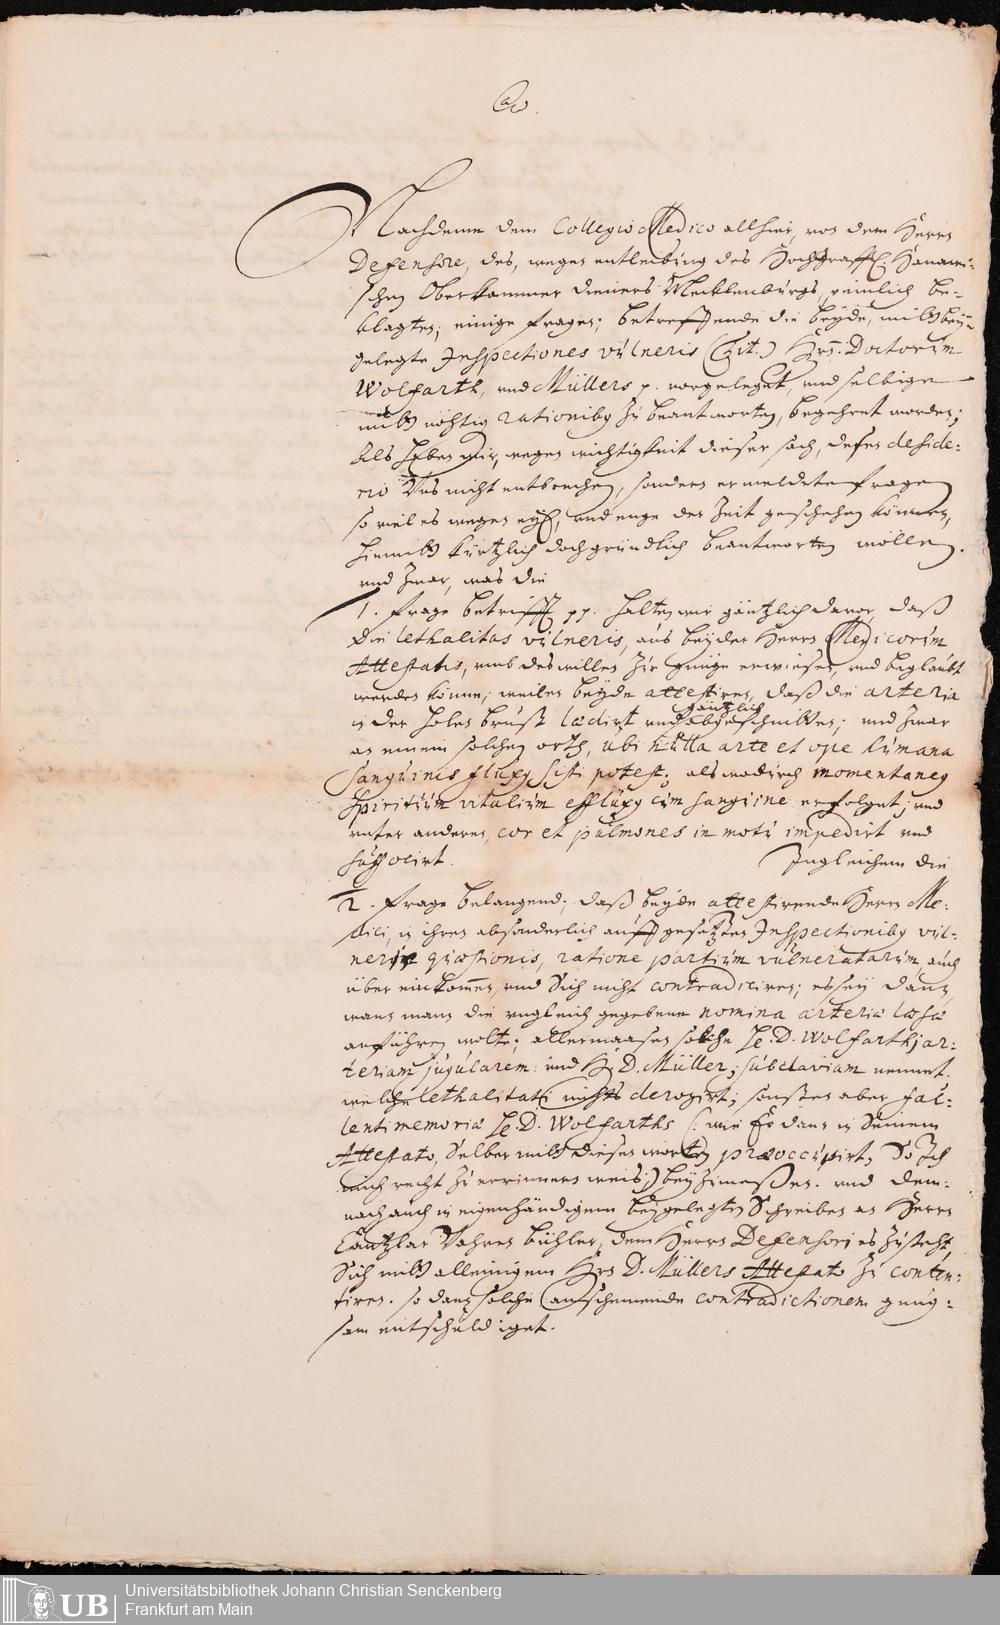 36
Nachdeme dem Collegio Medico allhier, von dem Herrn
Defensore, des, wegen entleibung des Hochgräffl. Hanawi-
schen Ober Kammer dieners Mecklenburgs, peinlich be-
klagten, einige fragen, betreffende die beyde, mitt bey-
gelegte Inspectiones vulneris (Tit.) Hrn. Doctorum
Wolfarth, und Müllers p. vorgeleget, und selbige
mitt nöhtig rationibus zu beantworten, begehret worden;
Als haben wir, wegen wichtigkeit dieser sach, dessen deside-
rio Uns nicht entbrechen, sondern ermeldete fragen
so viel es wegen eyl, und enge der Zeit geschehen können,
hiemitt kürtzlich doch gründlich beantworten wöllen.
und zwar, was die
1. frage betrifft pp. halten wir gäntzlich davor, daß
die lethalitas vulneris, aus beyder Herrn Medicorum
Attestatis, umb deswillen zur gnüge erwiesen, und beglaubt
werden könne, weilen beyde attestiren, daß die arteria
in der holen brust lædirt und gäntzlich abgeschnitten; und zwar
an einem solchen orth, ubi nulla arte et ope humana
sanguinis fluxus sisti potest; als wodurch momentaneus
spirituum vitalium effluxus cum sanguine erfolget; und
unter anderen, cor et pulmones in motu impedirt und
suffocirt. Ingleichem die
2. frage belangend; daß beyde attestirende Herrn Me-
dici, in ihren absonderlich auffgesetzten Inspectionibus vul-
nerum quæstionis, ratione partium vulneratarum, auch
überein kommen, und Sich nicht contradiciren; es sey dann,
wann mann die ungleich gegebene nomina arteriæ læsæ
anführen wolte; allermaasen solche He. D. Wolfarth, ar-
teriam jugularem: und H. D. Müller, subclaviam nennet.
welches lethalitati nichts derogirt; sonsten aber fal-
lenti memoriæ He. D. Wolfarths (: wie Er dann in Seinem
Attestato, Selber mitt diesen worten præoccupirt, So Ich
mich recht zu erinnern weis:) beyzumeßen. und dem-
nach auch in eigenhändigem beygelegten Schreiben an Herrn
Cantzlar Bühler, dem Herrn Defensori es zusteht,
Sich mitt alleinigem Hrn D. Müllers Attestato zu conten-
tiren. so dann solche anscheinende contradictionem gnug-
sam entschuldiget.
Universitätsbibliothek Johann Christian Senckenberg
Frankfurt am Main
UB